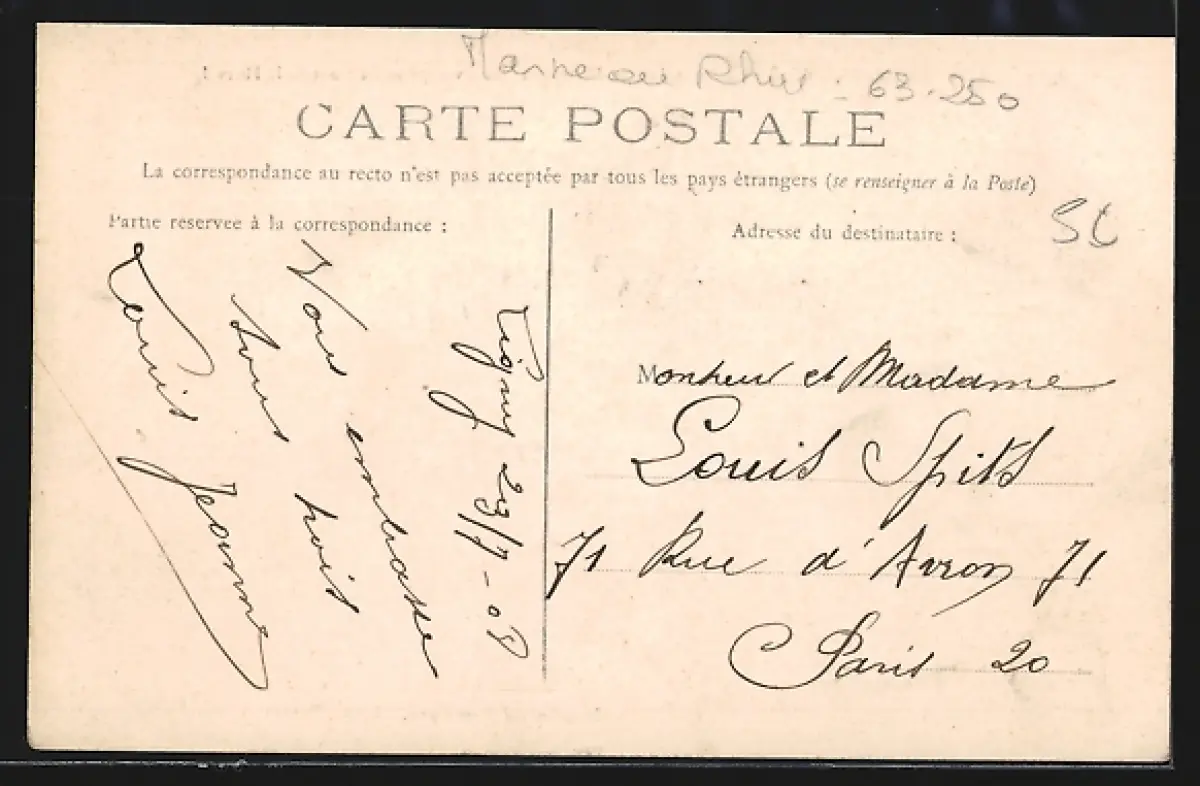 Marne au Rhin - 63.250
CARTE POSTALE
La correspondance au recto n'est pas acceptée par tous les pays étrangers (se renseigner à la Poste)
Partie reservee à la correspondance :
Adresse du destinataire :
Ligny 29/7-08
Vous embrasse
tous trois
Louis Jeanne
Monsieur et Madame
Louis Spits
71 Rue d'Avron 71
Paris 20